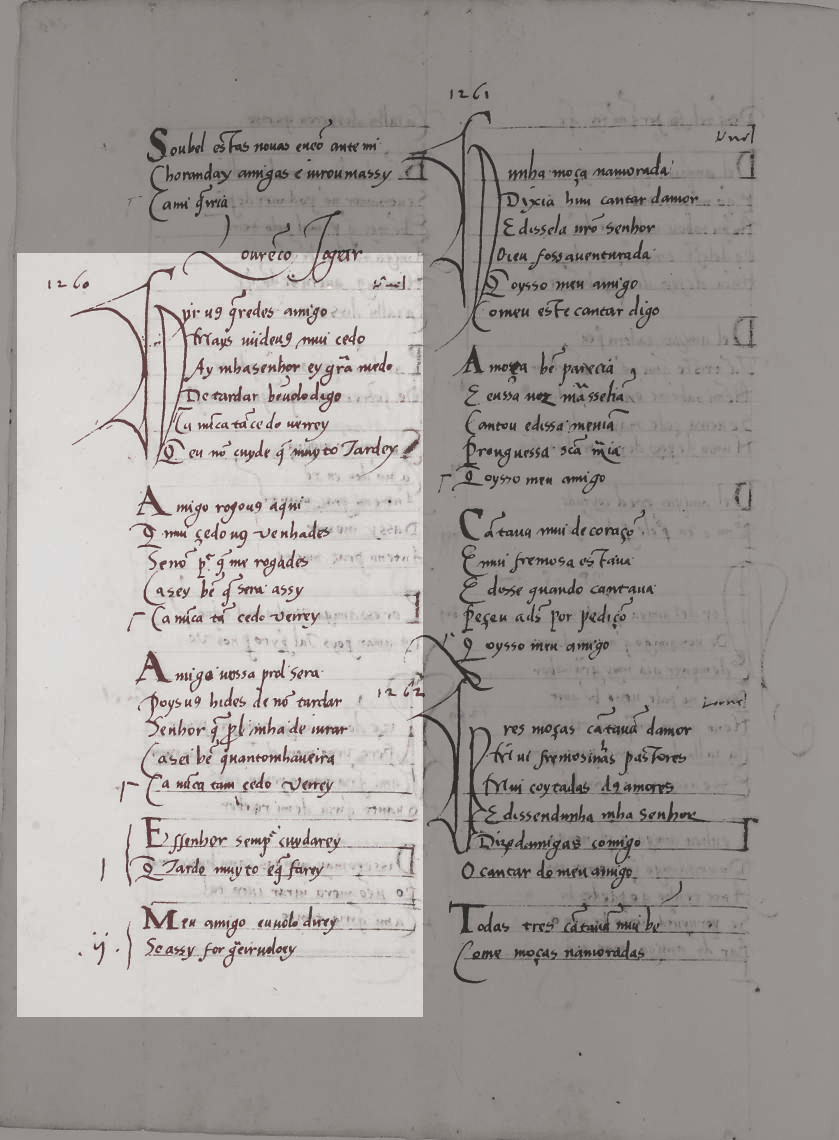 Soubel estas novas encõ ante mi
Choranday amigas e iurou massy
Cami q̃ria
Lourẽço Jograr
1260
Ir vꝯ q̃redes amigo
Mays uĩideuꝯ mui cedo
Ay mhasenhor ey grã medo
De tardar bẽ uolo digo
Ca nũca tã cedo verrey
Q̃ eu nõ cuyde q̃ muyto Tardey
Amigo rogouꝯ aqui
Q̃ mui çedo uꝯ venhades
Senõ p̃ q̃ me rogades
Ca sey bẽ q̃ sera assy
Ca nũca tã cedo verrey
Amigo uossa prol sera
Poys uꝯ hides de nõ tardar
Senhor q̃ prol mha de iurar
Ca sei bẽ quantomhaueira
Ca nũca tam cedo verrey
Essenhor semp̃ cuydarey
Q̃ Tardo muyto e q̃ farey
I
Meu amigo eu uolo direy
Se assy for g̃eiruoloey
.ij.
1261
Unha moça namorada
Dizia hun cantar damor
E dissela nrõ senhor
Oieu foss auenturada
Q̃ oysso meu amigo
Comeu este cantar digo
A moça bẽ parecia
E en ssa uoz mãsselia
Cantou e dissa menia
Prouguessa scã mia
Q̃ oysso meu amigo
Cãtaua mui de coraçõ
E mui fremosa estaua
E disse quando cantaua
Peçeu a dꝯ por pediçõ
Q̃ oysso meu amigo
1262
Tres moças cãtauã damor
Mui fremosinhas pastores
Mui coytadas dꝯ amores
E dissendunha mha Senhor
Dized amigas comigo
O cantar do meu amigo
Todas tres cãtauã mui bẽ
Come moças namoradas